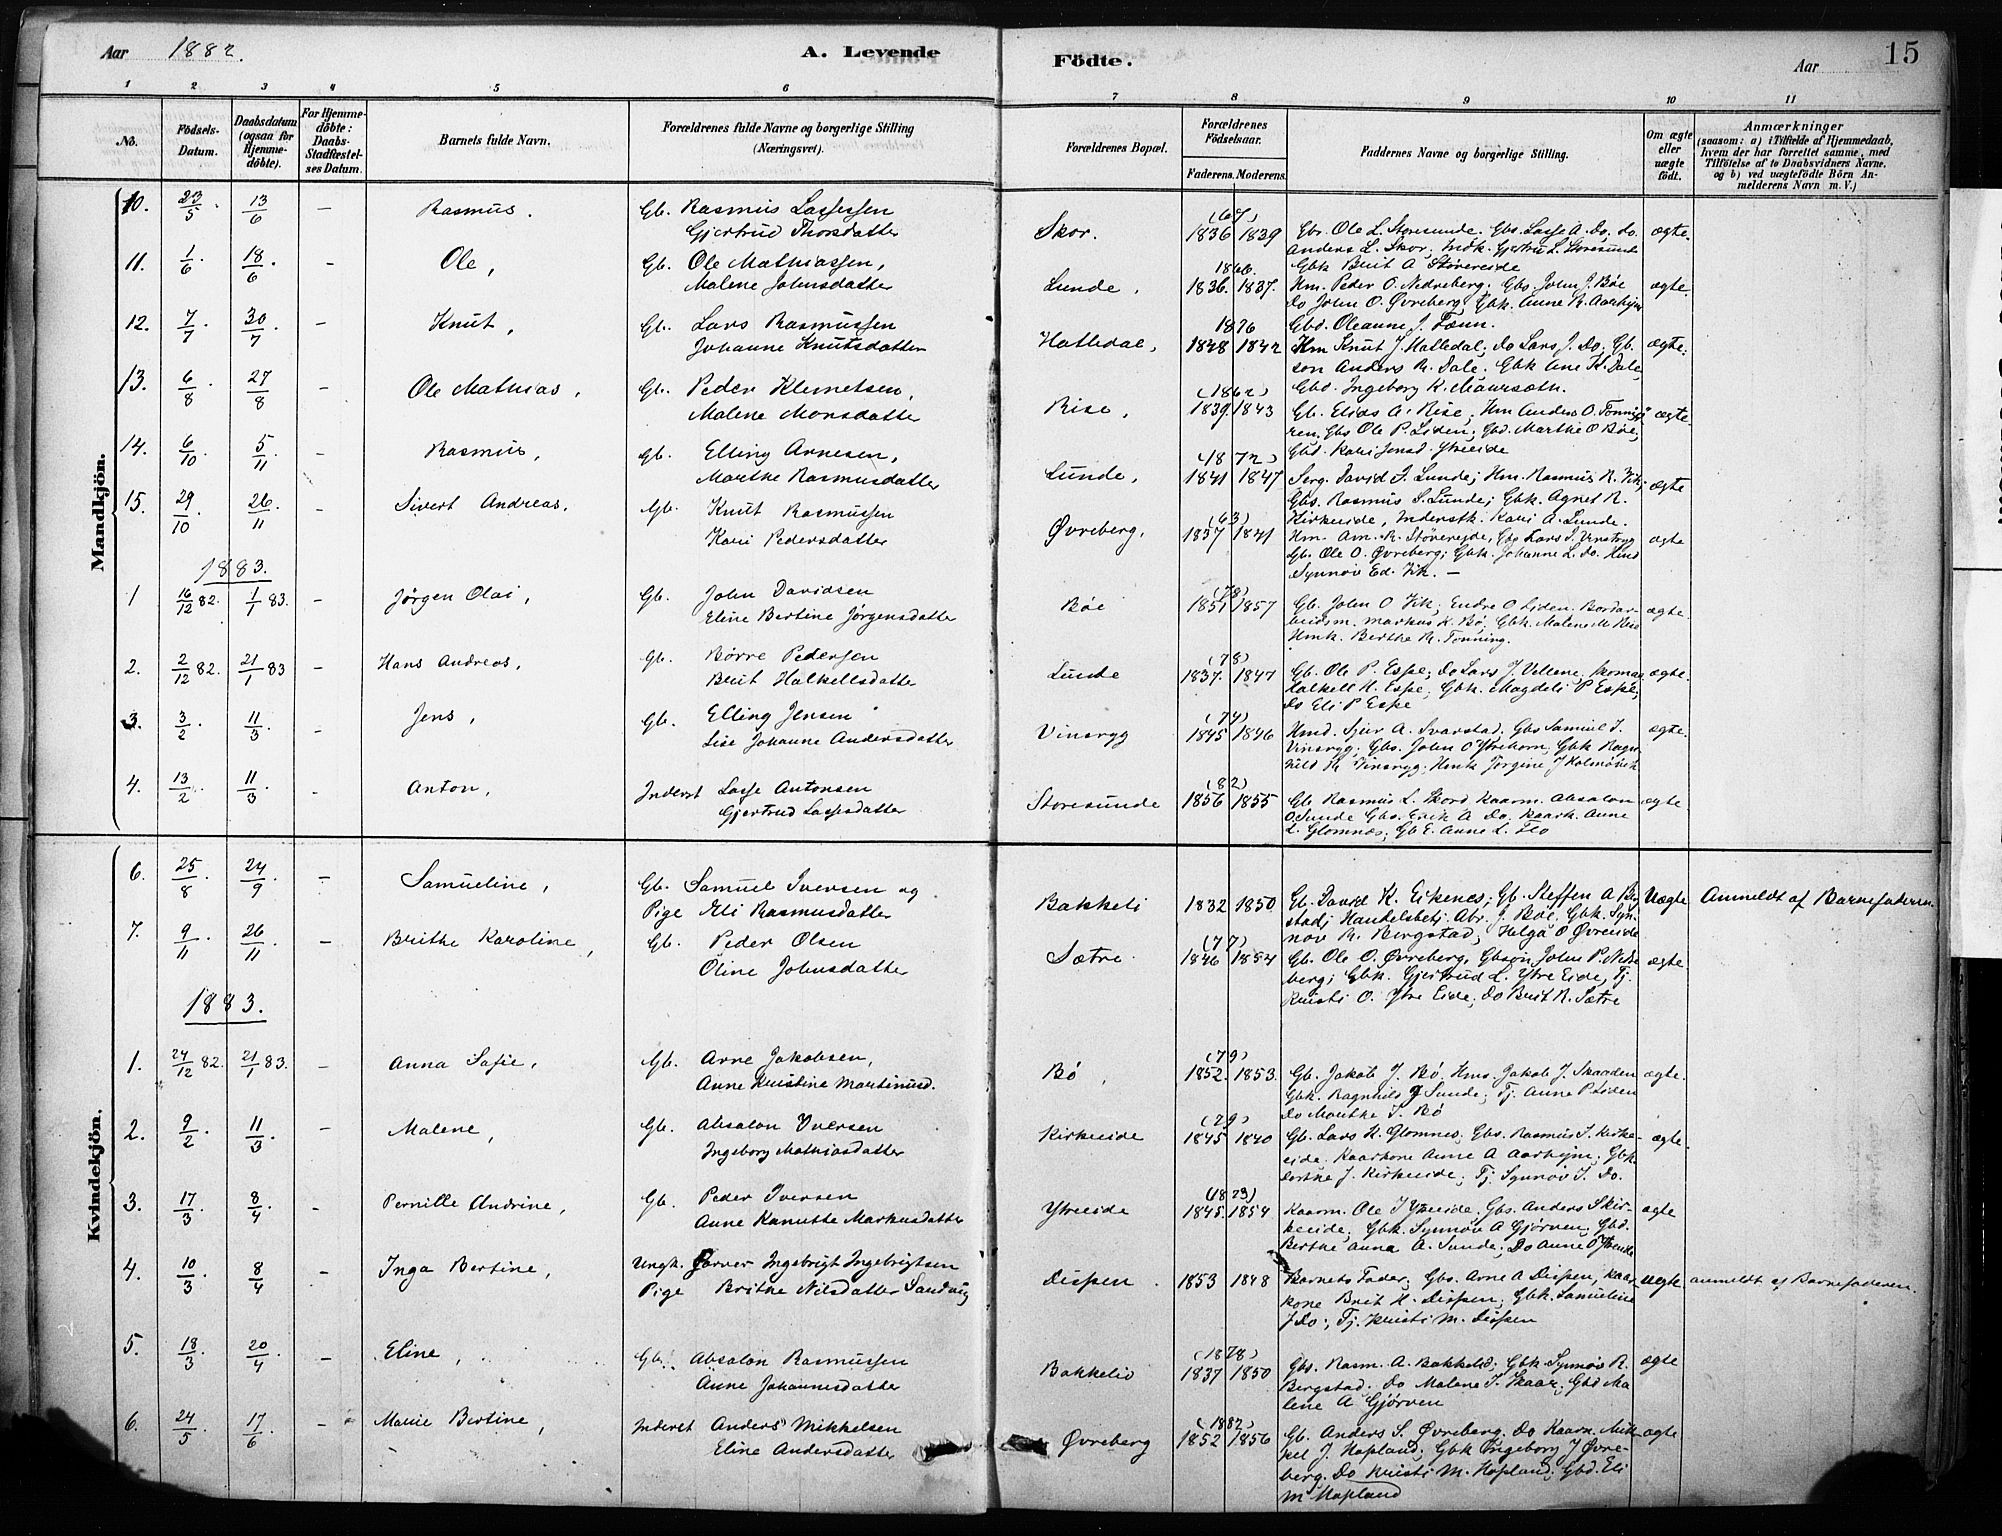 Aar 1882.
A. Levende
Födte.
Aar
15
1 2 3 4 5 6 7 8 9 10 11
No.
Födsels-Datum.
Daabsdatum (ogsaa for Hjemme-döbte).
For Hjemme-döbte: Daabs-Stadfæstel-ses Datum.
Barnets fulde Navn.
Forældrenes fulde Navne og borgerlige Stilling (Næringsvei).
Forældrenes Bopæl.
Forældrenes Födselsaar.
Faderens. Moderens.
Faddernes Navne og borgerlige Stilling.
Om ægte eller uægte födt.
Anmærkninger
(saasom: a) i Tilfælde af Hjemmedaab, hvem der har forrettet samme, med Tilföielse af to Daabsvidners Navne, og b) ved uægtefödte Börn An-melderens Navn m. V.)
Mandkjön.
10. 23/5 . 13/6 – Rasmus. Gb. Rasmus Lassessen
Gjertrud Thorsdatter
Skor. (67) 1836 1839 Gbr. Ole L. Storesunde. Gbs. Lasse A. Do. do.
Anders L. Skor. Indk. Gjertru L. Storesund
Gbk Brit A Støvereide
ægte.
11. 1/6 . 18/6 . – Ole, Gb. Ole Mathiassen,
Malene Johnsdatter
Lunde, 1866. 1836. 1837. Hm. Peder O. Nedreberg. Gbs. John J. Bõe
do John O. Øvreberg, Gbk. Anne R. Aarhejm
Gbd. Oleanne J. Tenn.
ægte.
12. 7/7 . 30/7 – Knut, Gb. Lars Rasmussen
Johanne Knutsdatter
Hatledal, 1876 1848 1842 Hm Knut J. Hatledal; do Lars J. Do. Gb.
son Anders R. Dale. Gbk Ane K. Dale,
Gbd. Ingeborg K. Maurseth.
ægte.
13. 6/8 27/8 – Ole Mathias, Gb. Peder Klemetsen,
Malene Monsdatter
Rise, (1862) 1839. 1843 Gb. Elias A. Rise, Hm Anders O. Tonnig
ren, Gbs Ole P. Liden, Gbd. Marthe O Bøe,
Gbd. Kari Jensd. Ytreeide
ægte
14. 6/10 5/11 – Rasmus, Gb. Elling Arnesen,
Marthe Rasmusdatter
Lunde, (1872) 1841 1847 Serg. David J. Lunde; Hm. Rasmus R. Vik,
Gbs. Rasmus S. Lunde; Gbk. Agnet R.
Kirkeeide, Inderstk. Kari A. Lunde.
ægte
15. 29/10 . 26/11 – Sivert Andreas, Gb. Knut Rasmussen
Kari Pedersdatter
Øvreberg, (63) 1837 1841 Hm. Am. R. Støvereide, Gbs Lars S. Vinsryg
Gb. Ole O. Øvreberg; Gbk. Johanne L. Do. Hmd
Synnøv Ed. Vik. –
ægte
1883.
1 16/12 82. 1/1 83. – Jørgen Olai, Gb. John Davidsen
Eline Bertine Jørgensdatter
Bõe (78) 1851 1857 Gb. John O Vik, Endre O Liden. Bordar-
beidsm. Markus K. Bø. Gbk. Malene M Rise
Hmk. Berthe R. Tonning.
ægte
2. 2/12 82. 21/1 83 – Hans Andreas, Gb. Børre Pedersen
Brit Halkellsdatter
Lunde (78) 1837. 1847 Gb. Ole P. Espe, do Lars J. Vellene, skomag
Halkell H. Espe, Gbk. Magdeli P Espe,
Do Eli P Espe
ægte.
3. 3/2 . 11/3 – Jens, Gb. Elling Jensen
Lise Johanne Andersdatter
Vinsryg (74) 1845 1846 Hmd. Sjur A. Svarstad. Gbs Samuel I.
Vinsryg, Gbs. John O Ytrehorn, Gbk Ragn-
hild R Vinsryg; Hmk Jørgine J Holmøvik
ægte.
4. 13/2 . 11/3 – Anton, Inderst Lasse Antonsen
Gjertrud Lassesdatter
Storesunde (82) 1856 1855 Gb Rasmus L. Skord Kaarm. Absalon
O Sunde Gbs. Erik A Do. Kaark. Anne
L. Glomnes, Gb E. Anne L. Flo
ægte
Kvindekjön.
6. 25/8 24/9 – Samueline, Gb. Samuel Iversen og
Pige Eli Rasmusdatter
Bakkeli 1832 1850 Gb. David K. Eikenæs; Gb. Steffen A Berg
stad, Handelsbetj. Abr. J. Bõe. Gbk. Syn-
nøv R. Bergstad; Helga O Øvreeide
Uægte Anmeldt af Barnefaderen.
7. 9/11 26/11 – Brithe Karoline, Gb. Peder Olsen
Oline Johnsdatter
Sætre. (77) 1846 1854 Gb. Ole O. Øvreberg, Gbsøn John P. Nedre
berg; Gbk. Gjertrud L. Ytre Eide, Tj.
Kristi O. Ytre Eide, do Brit R. Sætre
ægte.
1883.
1. 24/12 82. 21/1 83. – Anna Sofie, Gb. Arne Jakobsen,
Anne Kristine Martinusd.
Bø, (79) 1852. 1853. Gb. Jakob J. Bø. Hms. Jakob J. Skarden
Gbk. Ragnhild J Sunde, Tj. Anne P Liden
Do Marthe J. Bø
ægte.
2. 9/2 . 11/3 . – Malene, Gb. Absalon Iversen
Ingeborg Mathiasdatter
Kirkeeide (79) 1845 1840 Gb. Lars K. Glomnes; Gbs. Rasmus I. Kirke-
eide. Kaarkone Anne A Aarhejm. Gbk.
Dorthe J. Kirkeeide, Tj. Synnøv I. Do.
ægte.
3. 17/3 . 8/4 . – Pernille Andrine, Gb. Peder Iversen
Anne Kanutte Markusdatter
Ytreeide (1873) 1845. 1854 Kaarm. Ole I Ytreeide. Gbs. Anders S Kir-
keeide, Gbk. Synnøv A Gjørven, Gbd.
Berthe Anna A. Sunde, Do Anne O Ytreeide
ægte
4. 10/3 . 8/4 – Inga Bertine, Ungk. Garver Ingebrigt Ingebrigtsen
Pige Brithe Nilsdatter Sandvig
Dispen. 1853 1848 Barnets Fader; Gbs. Arne A Dispen, Kaar
kone Brit H. Dispen, Gbk. Samueline
J Do., Tj. Kristi M. Dispen
Uægte. anmeldt af Barnefaderen.
5. 18/3 . 20/4 . – Eline, Gb. Absalon Rasmussen
Anne Johannesdatter
Bakkelid (1878) 1837 1850 Gbs. Rasm. A. Bakkelid; Gbk Synnøv R.
Bergstad; do Malene I. Skaar, Gbd Ma
lene A Gjørven
ægte
6. 24/5 . 17/6 . – Marie Bertine, Inderst Anders Mikkelsen
Eline Andersdatter
Øvreberg (1882) 1852 1856 Gb. Anders S. Øvreberg. Do Kaarm. Mik-
kel J. Hopland; Gbk Ingeborg J Øvre-
berg. Do Kristi M. Hopland; Gbd. Eli
M Hopland
ægte